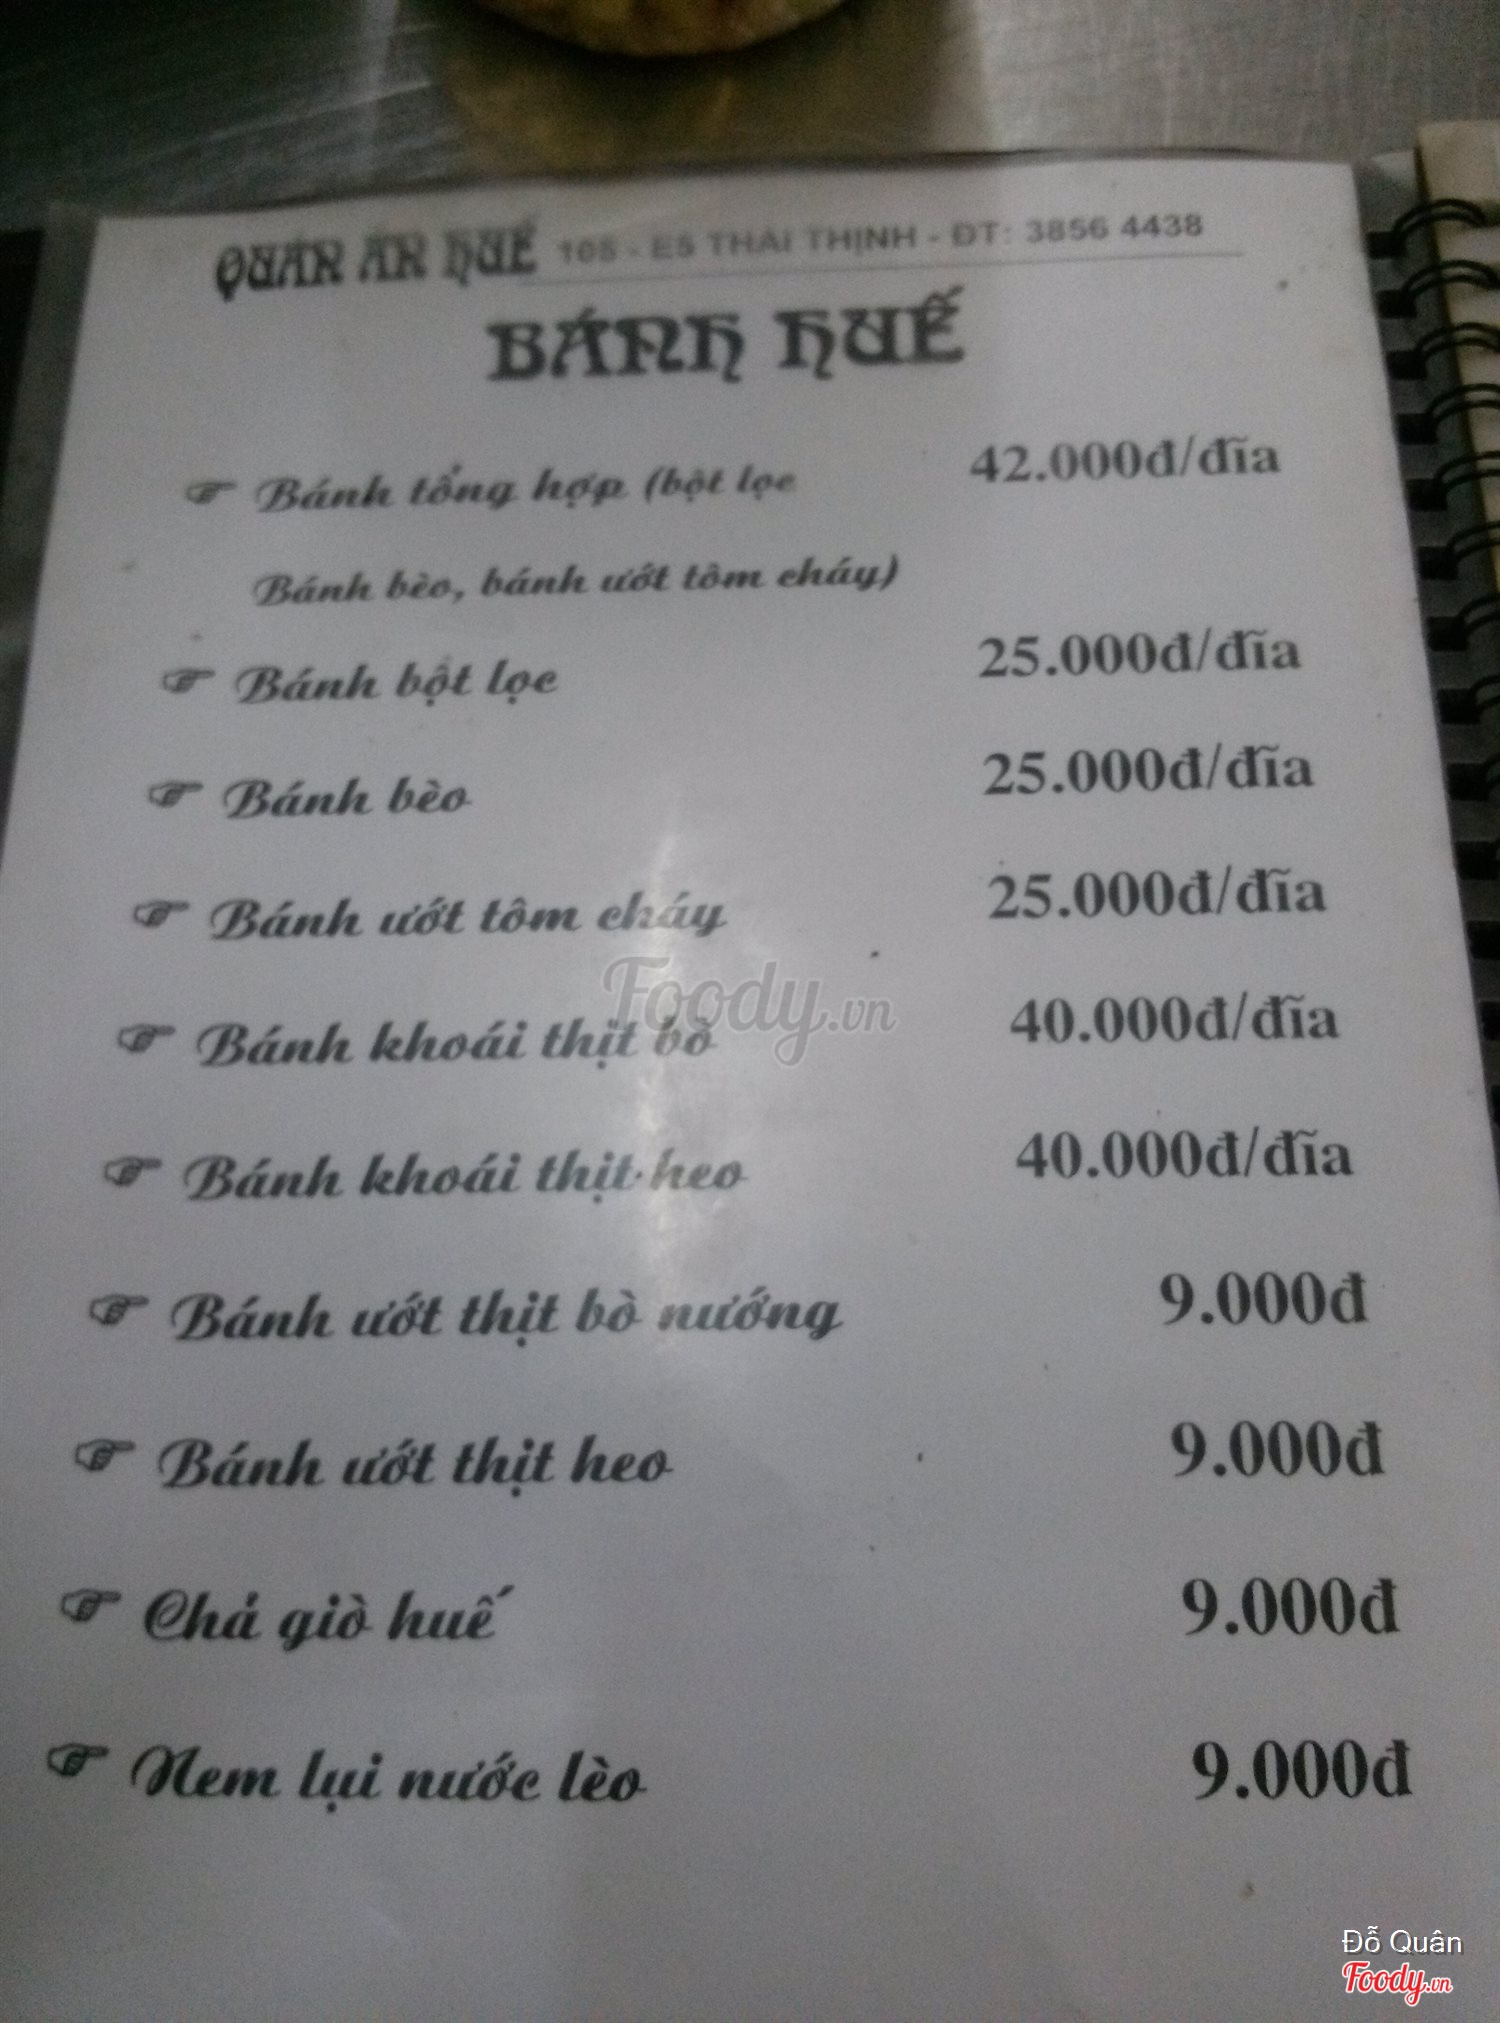 QUÁN ĂN HUẾ 105 - E5 THÁI THỊNH - ĐT: 3856 4438
BÁNH HUẾ
☞ Bánh tổng hợp (bột lọc 42.000đ/đĩa
Bánh bèo, bánh ướt tôm cháy)
☞ Bánh bột lọc 25.000đ/đĩa
☞ Bánh bèo 25.000đ/đĩa
☞ Bánh ướt tôm cháy 25.000đ/đĩa
Foody.vn
☞ Bánh khoái thịt bò 40.000đ/đĩa
☞ Bánh khoái thịt heo 40.000đ/đĩa
☞ Bánh ướt thịt bò nướng 9.000đ
☞ Bánh ướt thịt heo 9.000đ
☞ Chả giò huế 9.000đ
☞ Nem lụi nước lèo 9.000đ
Đỗ Quân
Foody.vn